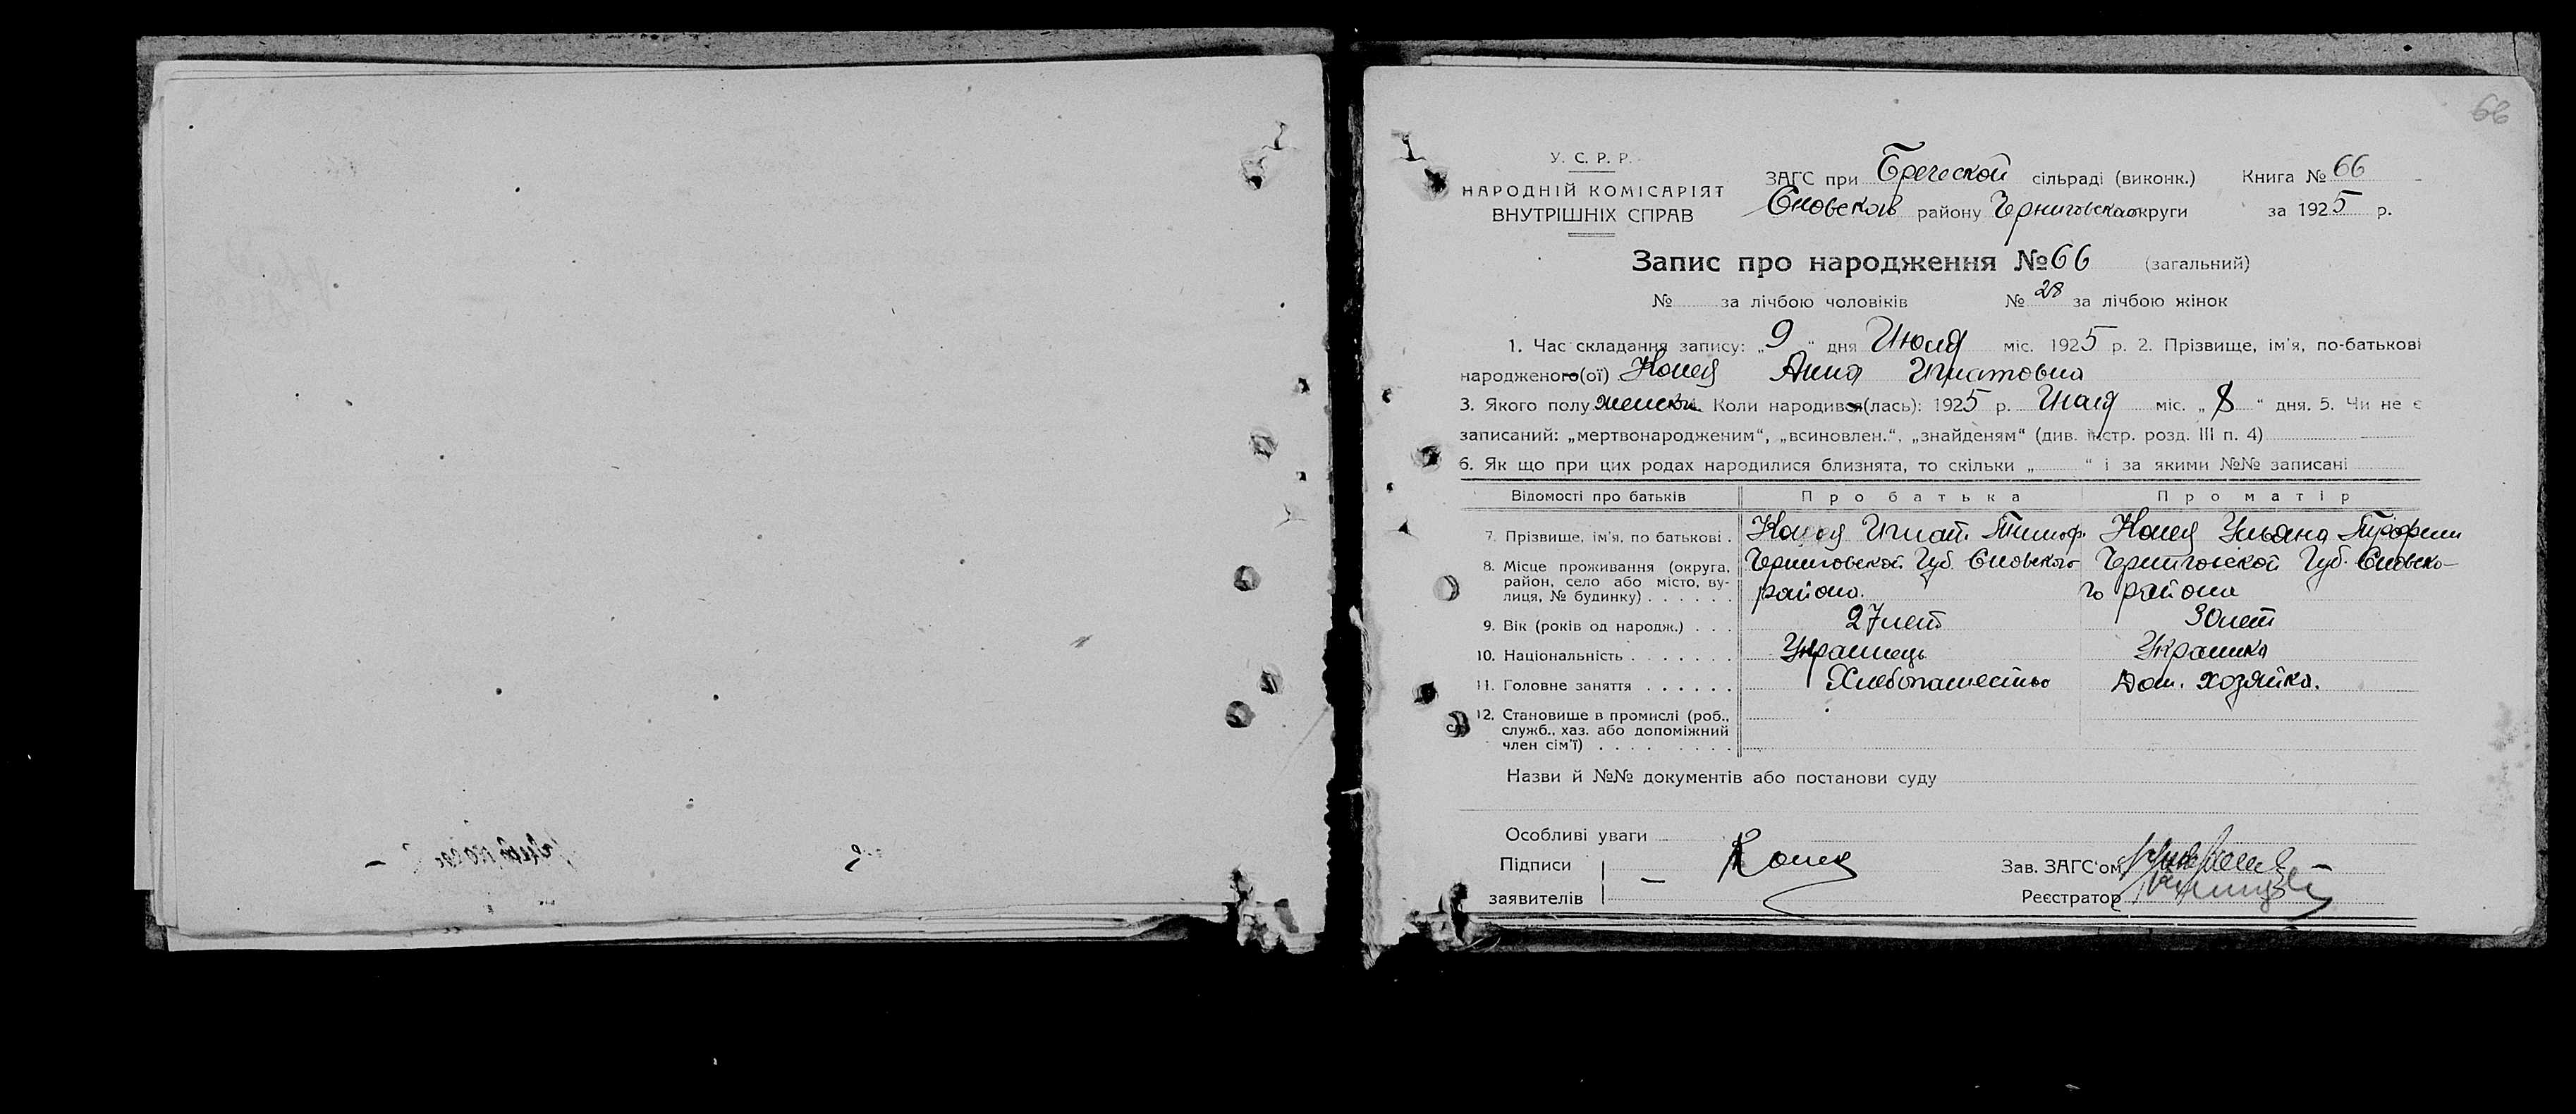 66
У. С. Р. Р.
НАРОДНІЙ КОМІСАРІЯТ
ВНУТРІШНІХ СПРАВ
ЗАГС при Бречской сільраді (виконк.) Книга № 66
Сновской району Черниговской округи за 1925 р.
Запис про народження № 66 (загальний)
№ за лічбою чоловіків № 28 за лічбою жінок
1. Час складання запису: „9“ дня Июля міс. 1925 р. 2. Прізвище, ім'я, по-батькові
народженого(ої) Анна Игнатовна
3. Якого полу женск. Коли народився(лась): 1925 р. Июля міс. „8“ дня. 5. Чи не є
записаний: „мертвонародженим“, „всиновлен.“, „знайденям“ (див. інстр. розд. III п. 4)
6. Як що при цих родах народилися близнята, то скільки „ “ і за якими №№ записані
Відомості про батьків Про батька Про матір
7. Прізвище, ім'я, по батькові . Игнат. Тимоф. Ульяна
8. Місце проживання (округа, район, село або місто, вулиця, № будинку) . . . . . . Черниговской Губ. Сновского района. Черниговской Губ. Сновского района
9. Вік (років од народж.) . . . 27 лет 30 лет
10. Національність . . . . . . . Украинець Украинка
11. Головне заняття . . . . . . Хлебопашество Дом. хозяйка.
12. Становище в промислі (роб., служб., хаз. або допоміжний член сім'ї) . . . . . . . .
Назви й №№ документів або постанови суду
Особливі уваги
Підписи
заявителів
Зав. ЗАГС'ом
Реєстратор